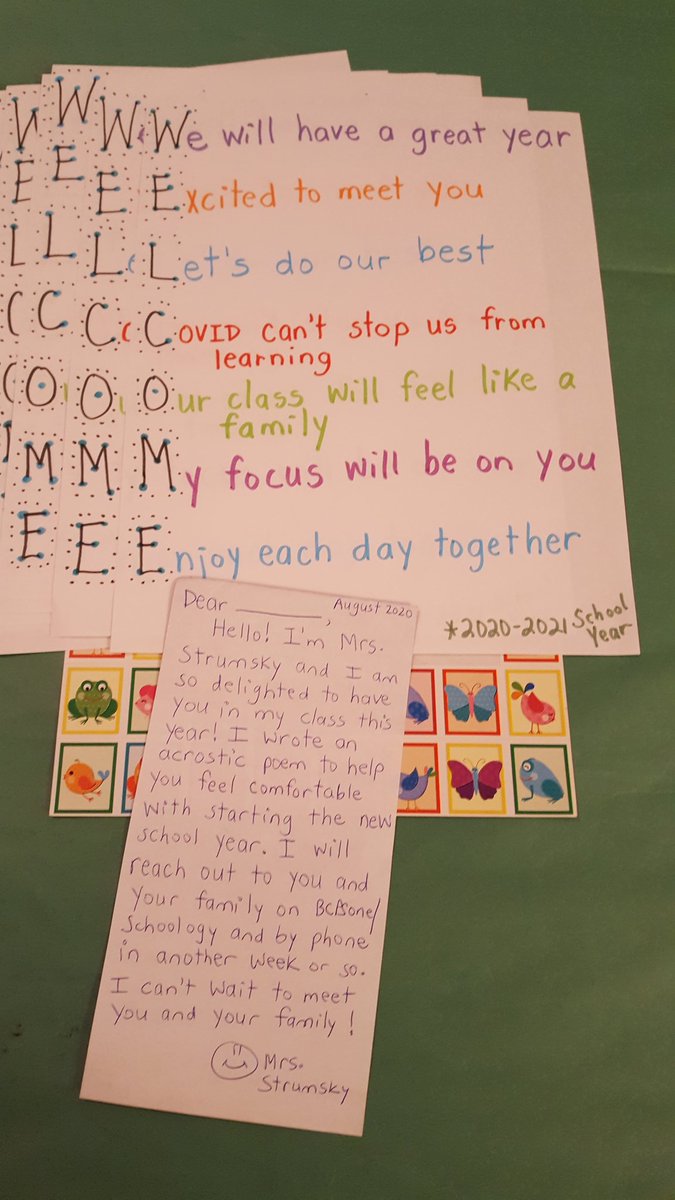 We will have a great year
Excited to meet you
Let's do our best
COVID can't stop us from
learning
Our class will feel like a
family
My focus will be on you
Enjoy each day together
*2020-2021 School
Year
W
E
L
C
O
M
E
W
E
L
C
O
M
E
W
E
L
C
O
M
Dear ________, August 2020
Hello! I'm Mrs.
Strumsky and I am
so delighted to have
you in my class this
year! I wrote an
acrostic poem to help
you feel comfortable
with starting the new
school year. I will
reach out to you and
your family on BCPSone/
Schoology and by phone
in another week or so.
I can't wait to meet
you and your family!
Mrs.
Strumsky